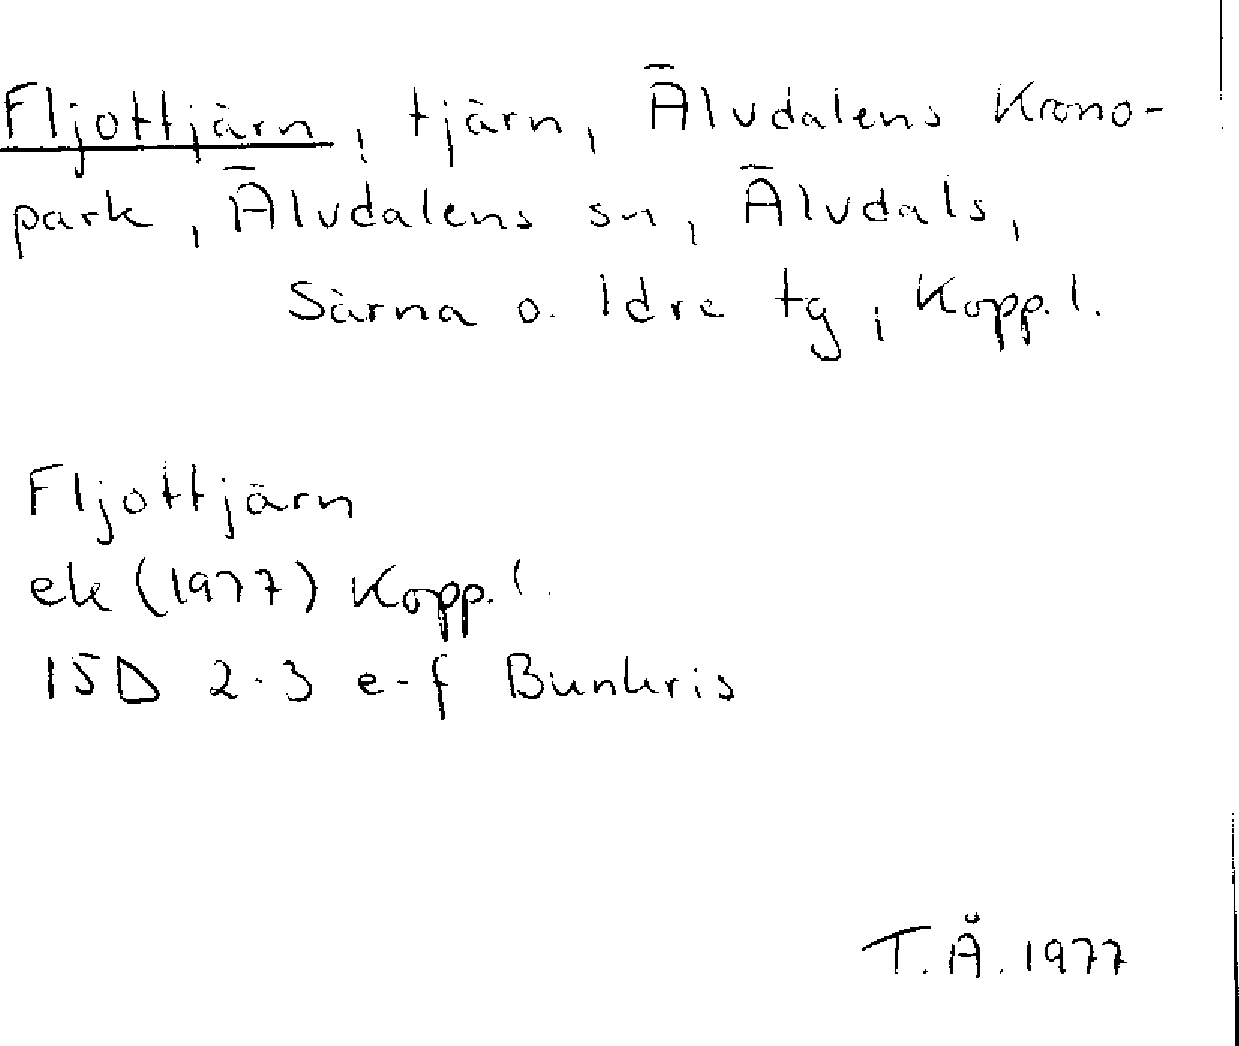 Fljottjärn, tjärn, Älvdalens Krono-
park, Älvdalens sn, Älvdals,
Särna o. Idre tg, Kopp. l.
Fljottjärn
ek (1977) Kopp. l.
15D 2-3 e-f Bunkris
T. Å. 1977